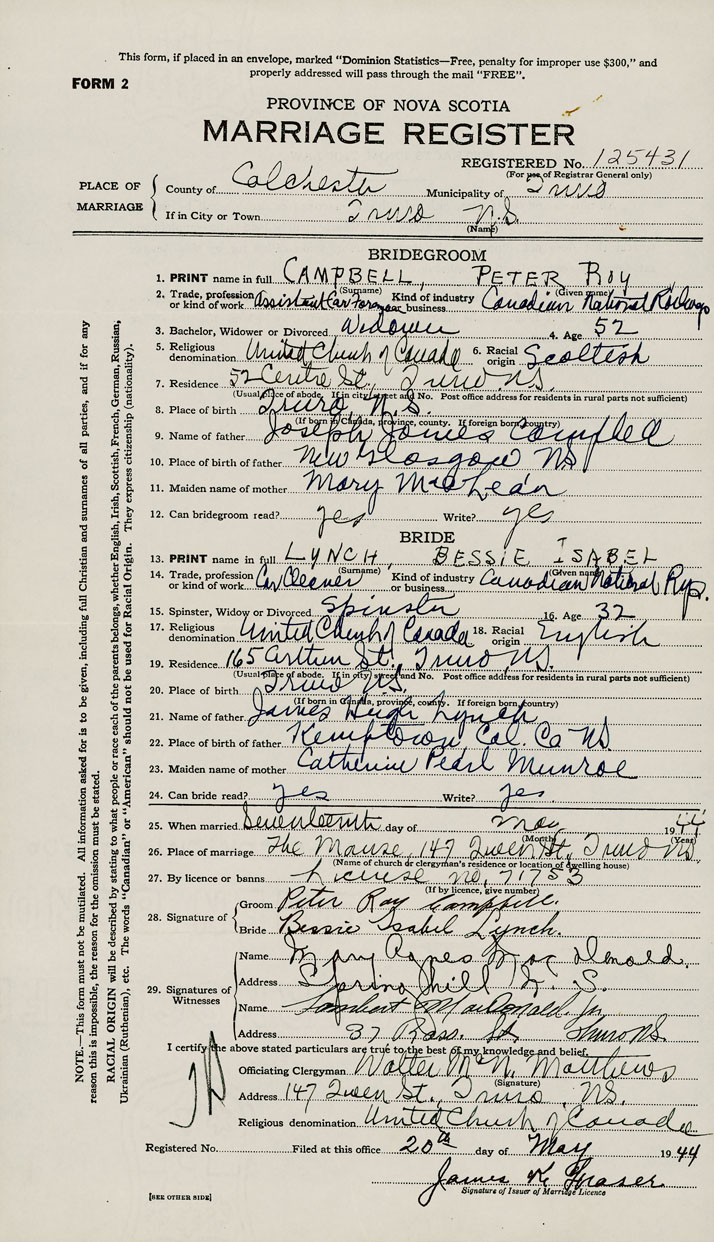 This form, if placed in an envelope, marked "Dominion Statistics—Free, penalty for improper use $300," and
properly addressed will pass through the mail "FREE".
FORM 2
PROVINCE OF NOVA SCOTIA
MARRIAGE REGISTER
REGISTERED No. 125431
(For use of Registrar General only)
PLACE OF MARRIAGE
County of Colchester Municipality of Truro
If in City or Town Truro N.S.
(Name)
BRIDEGROOM
1. PRINT name in full CAMPBELL, PETER ROY
(Surname) (Given name)
2. Trade, profession or kind of work Assistant Car Foreman Kind of industry or business Canadian National Railways
3. Bachelor, Widower or Divorced Widower 4. Age 52
5. Religious denomination United Church of Canada 6. Racial origin Scottish
7. Residence 52 Centre St., Truro NS.
(Usual place of abode. If in city street and No. Post office address for residents in rural parts not sufficient)
8. Place of birth Truro N.S.
(If born in Canada, province, county. If foreign born country)
9. Name of father Joseph James Campbell
10. Place of father New Glasgow NS
11. Maiden name of mother Mary MacLean
12. Can bridegroom read? yes Write? yes
BRIDE
13. PRINT name in full LYNCH, BESSIE ISABEL
(Surname) (Given name)
14. Trade, profession or kind of work Car Cleaner Kind of industry or business Canadian National Rys.
15. Spinster, Widow or Divorced Spinster 16. Age 32
17. Religious denomination United Church of Canada 18. Racial origin English
19. Residence 165 Arthur St., Truro NS.
(Usual place of abode. If in city street and No. Post office address for residents in rural parts not sufficient)
20. Place of birth Truro NS.
(If born in Canada, province, county. If foreign born country)
21. Name of father James Hugh Lynch
22. Place of birth of father Kemptown Col. Co NS.
23. Maiden name of mother Catherine Pearl Munroe
24. Can bride read? yes Write? yes.
25. When married Seventeenth day of May 1944
(Month) (Year)
26. Place of marriage The Manse, 147 Queen St., Truro NS
(Name of church or clergyman's residence or location of dwelling house)
27. By licence or banns License no. 71753
(If by licence, give number)
28. Signature of
Groom Peter Roy Campbell.
Bride Bessie Isabel Lynch.
29. Signatures of Witnesses
Name Mary Agnes MacDonald.
Address Springhill N.S.
Name Lambert MacDonald. Jr.
Address 37 Ross. St Truro NS
I certify the above stated particulars are true to the best of my knowledge and belief.
Officiating Clergyman Walter McN. Matthews
(Signature)
Address 147 Queen St., Truro, NS.
Religious denomination United Church of Canada
Registered No. Filed at this office 20th day of May 1944
James K. Fraser.
Signature of Issuer of Marriage Licence
[SEE OTHER SIDE]
NOTE.—This form must not be mutilated. All information asked for is to be given, including full Christian and surnames of all parties, and if for any
reason this is impossible, the reason for the omission must be stated.
RACIAL ORIGIN will be described by stating to what people or race each of the parents belongs, whether English, Irish, Scottish, French, German, Russian,
Ukrainian (Ruthenian), etc. The words "Canadian" or "American" should not be used for Racial Origin. They express citizenship (nationality).